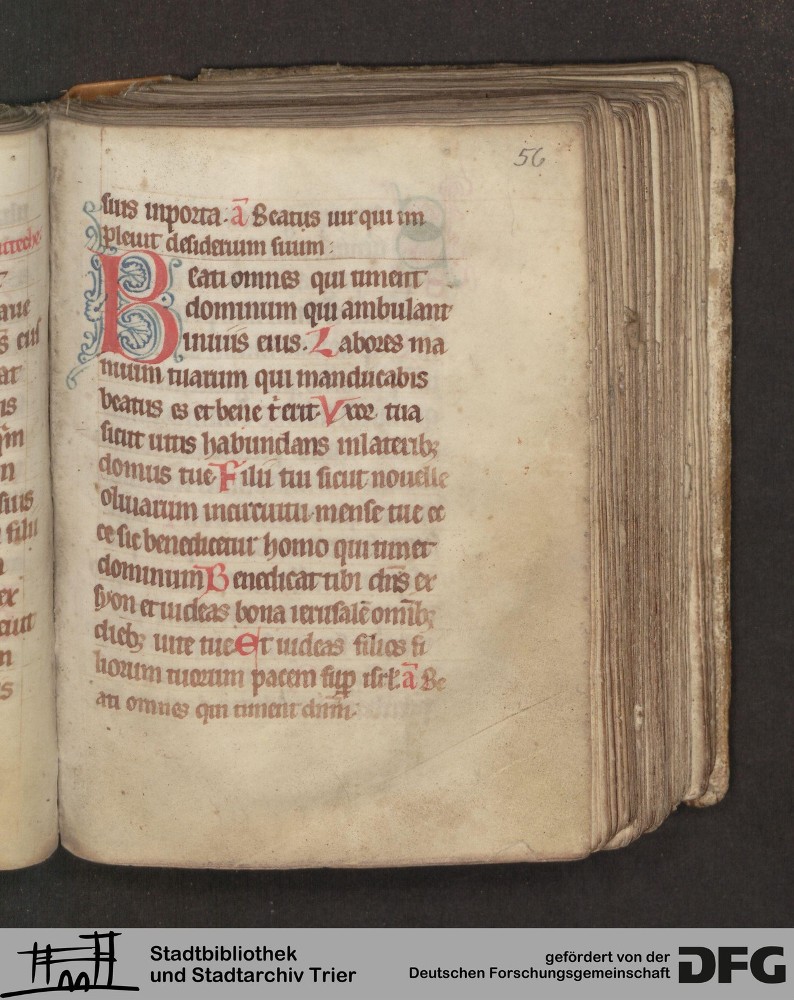 56
suis inporta. ā Beatus uir qui im
pleuit desiderium suum:
Beati omnes qui timent
dominum qui ambulant
inuiis eius. Labores ma
nuum tuarum qui manducabis
beatus es et bene t̄ erit. Vxor tua
sicut uitis habundans inlaterib;
domus tue Filii tui sicut nouelle
oliuarum incircuitu mense tue ec
ce sic benedicetur homo qui timet
dominum Benedicat tibi dn̄s ex
syon et uideas bona ierusalē omīb;
dieb; uite tue Et uideas filios fi
liorum tuorum pacem sup isrl. ā Be
ati omnes qui timent dnm̄.
Stadtbibliothek
und Stadtarchiv Trier
gefördert von der
Deutschen Forschungsgemeinschaft
DFG